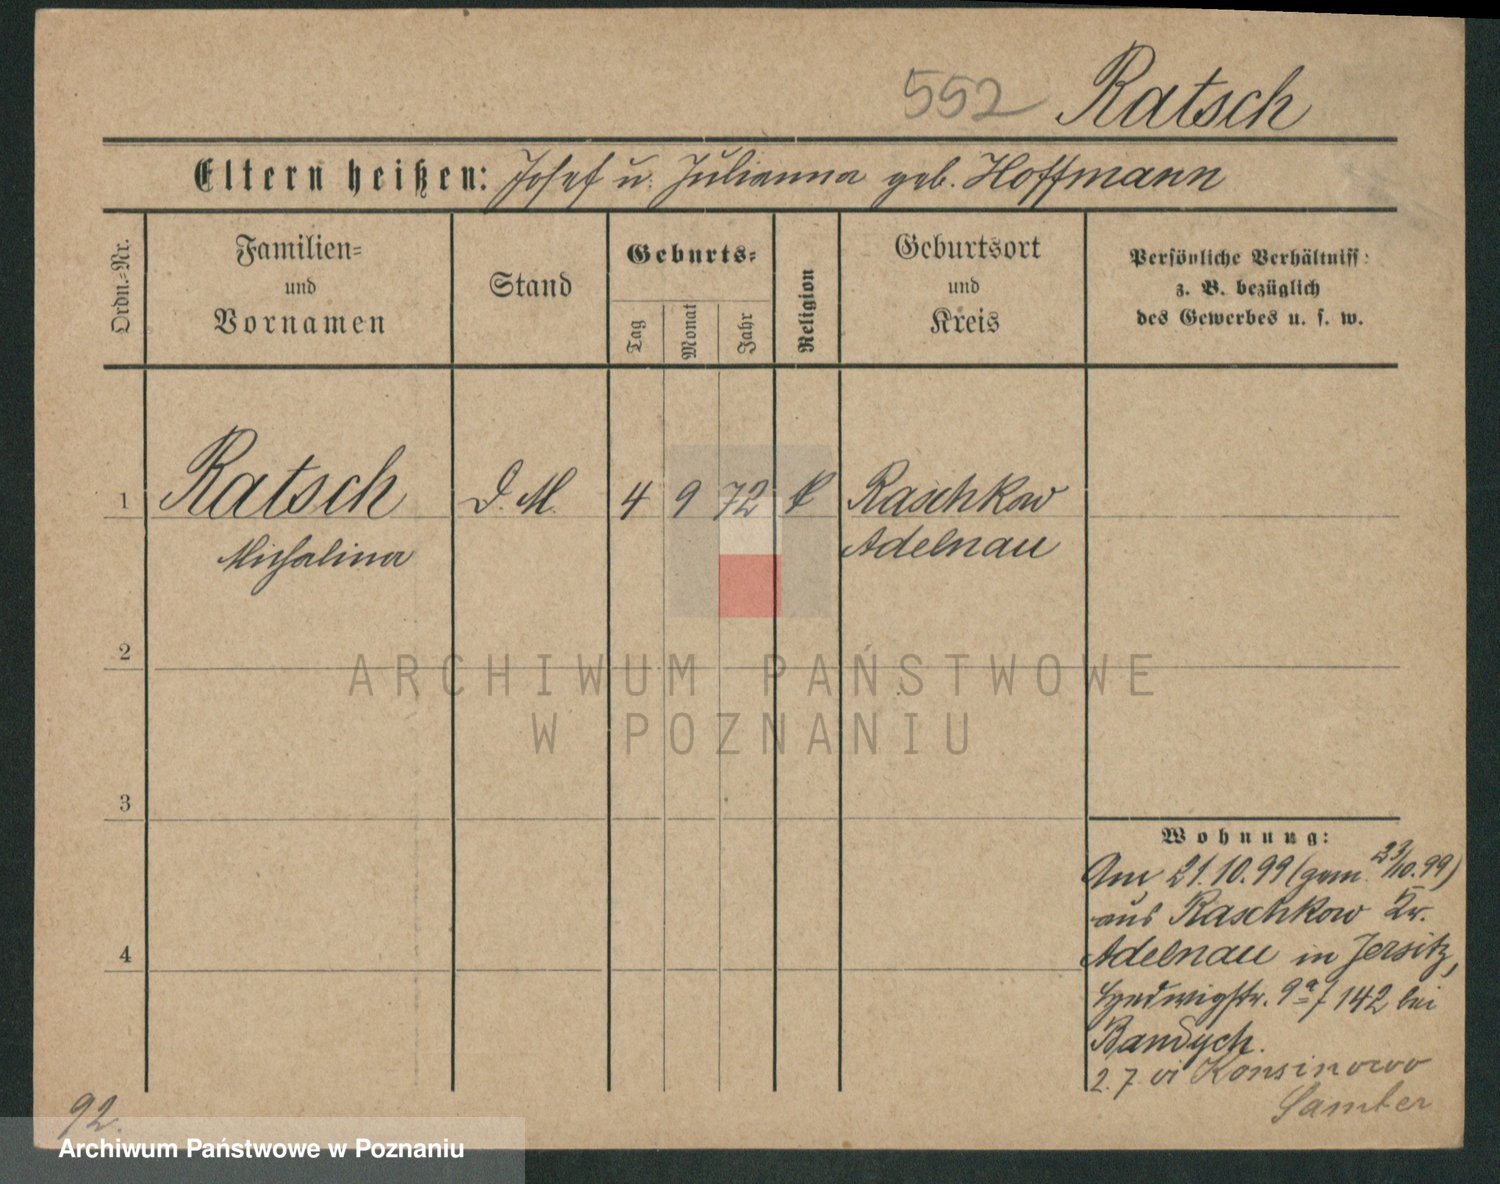 552 Ratsch
Eltern heißen: Josef u. Julianna geb. Hoffmann
Ordn.-Nr.
Familien-
und
Vornamen
Stand
Geburts-
Tag
Monat
Jahr
Religion
Geburtsort
und
Kreis
Persönliche Verhältniss:
z. B. bezüglich
des Gewerbes u. s. w.
1 Ratsch D. M. 4 9 72 k Raschkow
Michalina Adelnau
2
3
4
Wohnung:
Am 21.10.99 (gem. 23/10.99)
aus Raschkow Kr.
Adelnau in Jersitz,
Hedwigstr. 9a 142 bei
2. 7. 01
92.
ARCHIWUM PAŃSTWOWE
W POZNANIU
Archiwum Państwowe w Poznaniu